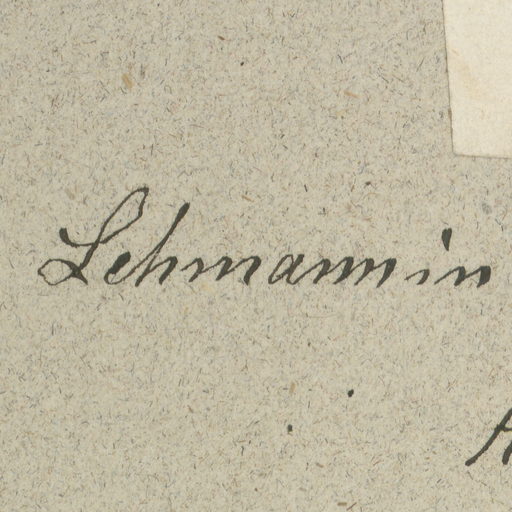 Lehmann in